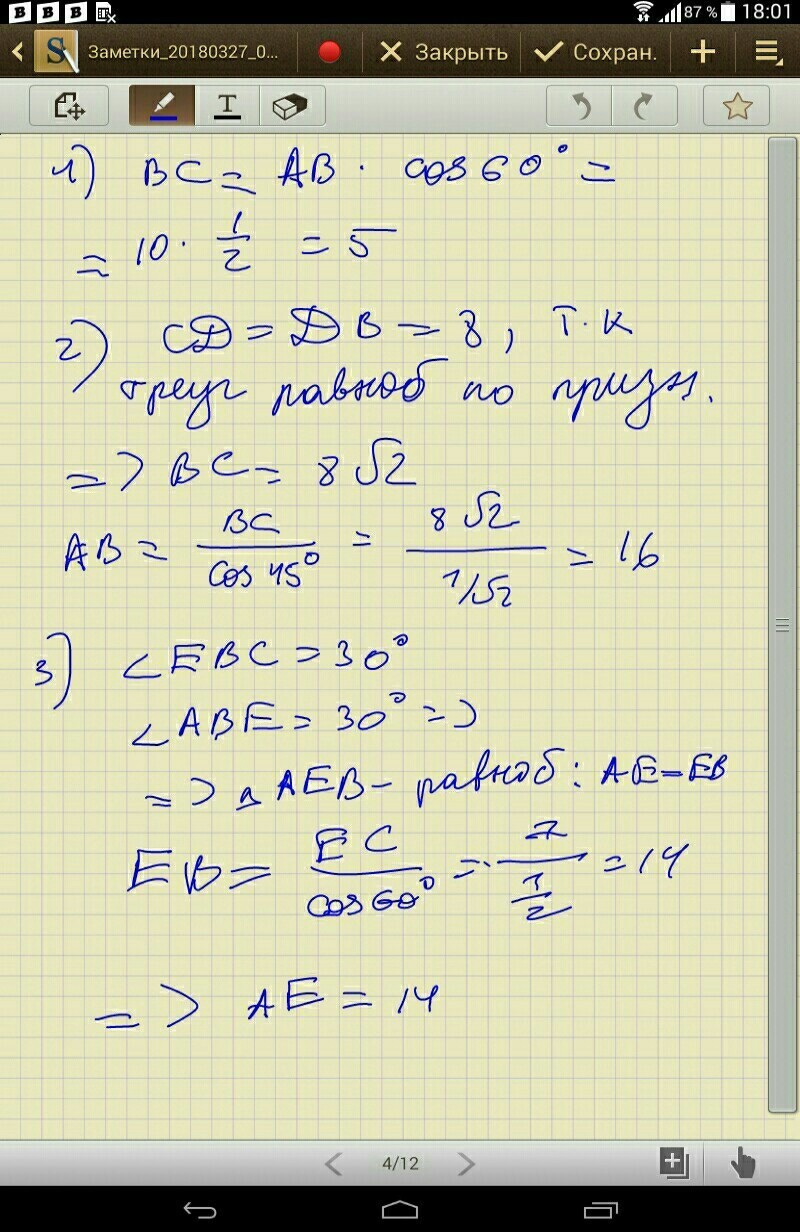 87 % 18:01
Заметки_20180327_0... Закрыть Сохран.
T
1) BC = AB · cos 60° =
= 10 · 1/2 = 5
2) CД = ДB = 8, т.к
треуг равноб по призн.
=> BC = 8√2
AB = BC/cos 45° = 8√2/1/√2 = 16
3) ∠EBC = 30°
∠ABE = 30° =>
=> △AEB – равноб: AE = EB
EB = EC/cos 60° = 7/1/2 = 14
=> AE = 14
4/12